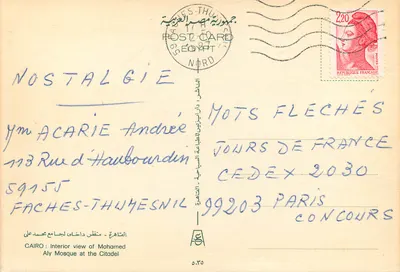 جمهورية مصر العربية
POST CARD
EGYPT
59 FACHES-THUMESNIL
NORD
2,20
REPUBLIQUE FRANÇAISE
NOSTALGIE
Mm ACARIE Andrée
113 Rue d'Haubourdin
59155
FACHES-THUMESNIL
MOTS FLECHÉS
JOURS DE FRANCE
CEDEX 2030
99203 PARIS
CONCOURS
القاهرة - منظر داخلى لجامع محمد على
CAIRO : Interior view of Mohamed
Aly Mosque at the Citadel